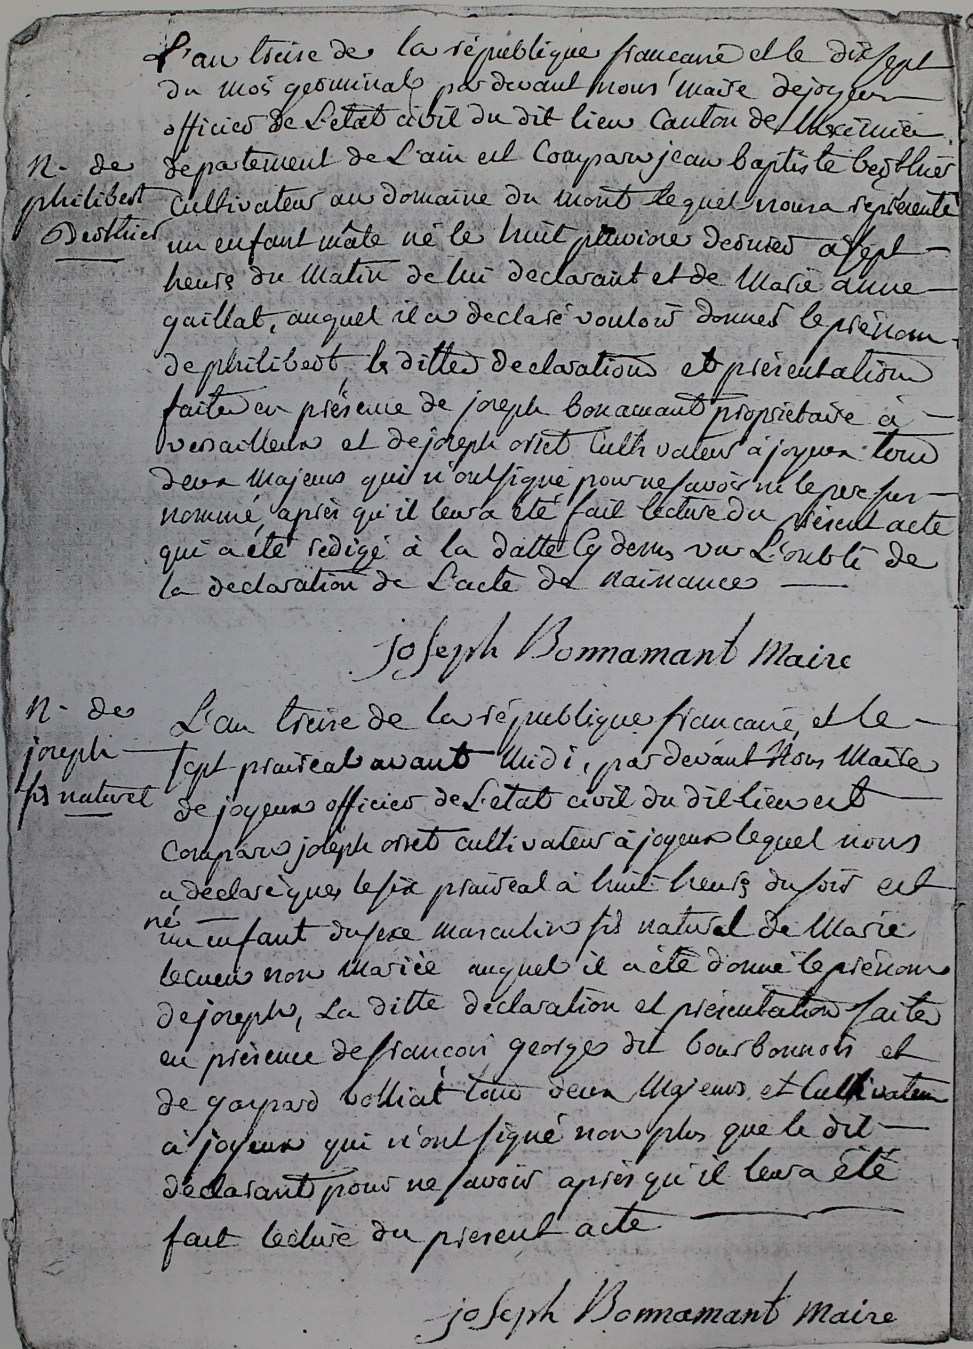 L'an treize de la république francaise et le dix sept
du mois germinal par devant nous maire de joyeux
officier de L'etat civil du dit lieu Canton de Meximieu
N. de
philibert
Berthier
departement de L'ain est Comparu jean baptiste berthier
Cultivateur au domaine du mont lequel nous a représenté
un enfant mâle né le huit pluviose dernier a sept
heures du matin de lui declarant et de Marie anne
gaillat, auquel il a declaré vouloir donner le prénom
de philibert, la ditte declaration et présentation
faite en présence de joseph bonamant propriétaire à
versailleux et de joseph orset Cultivateur à joyeux tous
deux Majeurs qui n'ont signé pour ne savoir ni le pere sur
nommé, après qu'il leur a été fait lecture du présent acte
qui a été redigé à la datte Cy dessus vu L'oubli de
la declaration de L'acte de naissance
joseph Bonnamant Maire
N. de
joseph
fs naturel
L'an treize de la république francaise, et le
sept praireal avant Midi, par devant Nous Maire
de joyeux officier de L'etat civil du dit lieu est
Comparu joseph orset cultivateur à joyeux lequel nous
a déclaré que le six prairéal à huit heures du soir est
né
un enfant du sexe masculin fs naturel de Marie
lecuer non Mariée auquel il a été donné le prénom
de joseph, La ditte déclaration et présentation faite
en présence de francois georges dit bourbonnois et
de gaspard volliat tous deux Majeurs et Cultivateur
à joyeux qui n'ont signé non plus que le dit
déclarant pour ne savoir après qu'il leur a été
fait lecture du present acte
joseph Bonnamant Maire